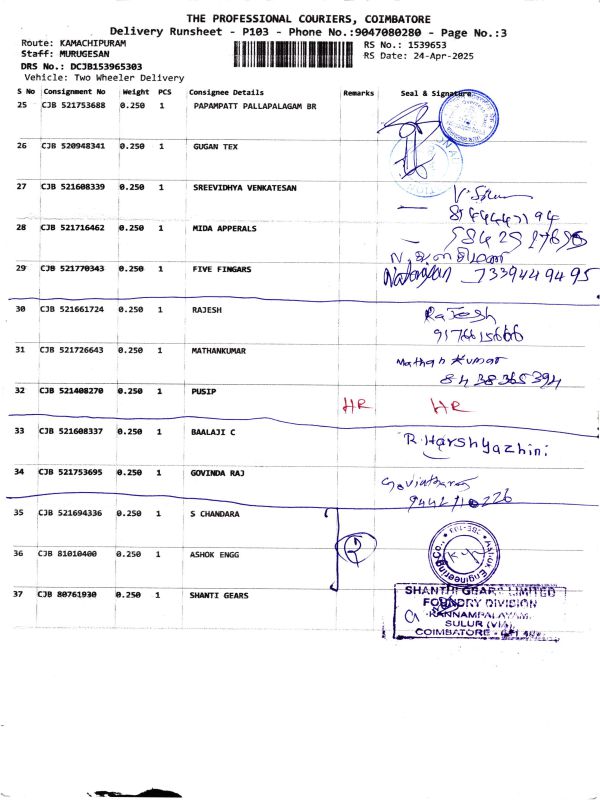 THE PROFESSIONAL COURIERS, COIMBATORE
Delivery Runsheet - P103 - Phone No.:9047080280 - Page No.:3
Route: KAMACHIPURAM RS No.: 1539653
Staff: MURUGESAN RS Date: 24-Apr-2025
DRS No.: DCJB153965303
Vehicle: Two Wheeler Delivery
S No Consignment No Weight PCS Consignee Details Remarks Seal & Signature
25 CJB 521753688 0.250 1 PAPAMPATT PALLAPALAGAM BR
26 CJB 520948341 0.250 1 GUGAN TEX
27 CJB 521608339 0.250 1 SREEVIDHYA VENKATESAN
28 CJB 521716462 0.250 1 MIDA APPERALS
29 CJB 521770343 0.250 1 FIVE FINGARS Natarajan 7339449495
30 CJB 521661724 0.250 1 RAJESH Rajesh
9176615666
31 CJB 521726643 0.250 1 MATHANKUMAR Mathan Kumar
8438365394
32 CJB 521408270 0.250 1 PUSIP HR HR
33 CJB 521608337 0.250 1 BAALAJI C R. Harshyazhini
34 CJB 521753695 0.250 1 GOVINDA RAJ
35 CJB 521694336 0.250 1 S CHANDARA
36 CJB 81010400 0.250 1 ASHOK ENGG 2
37 CJB 80761930 0.250 1 SHANTI GEARS SHANTHI GEARS LIMITED
FOUNDRY DIVISION
KANNAMPALAYAM,
SULUR (VIA),
COIMBATORE -